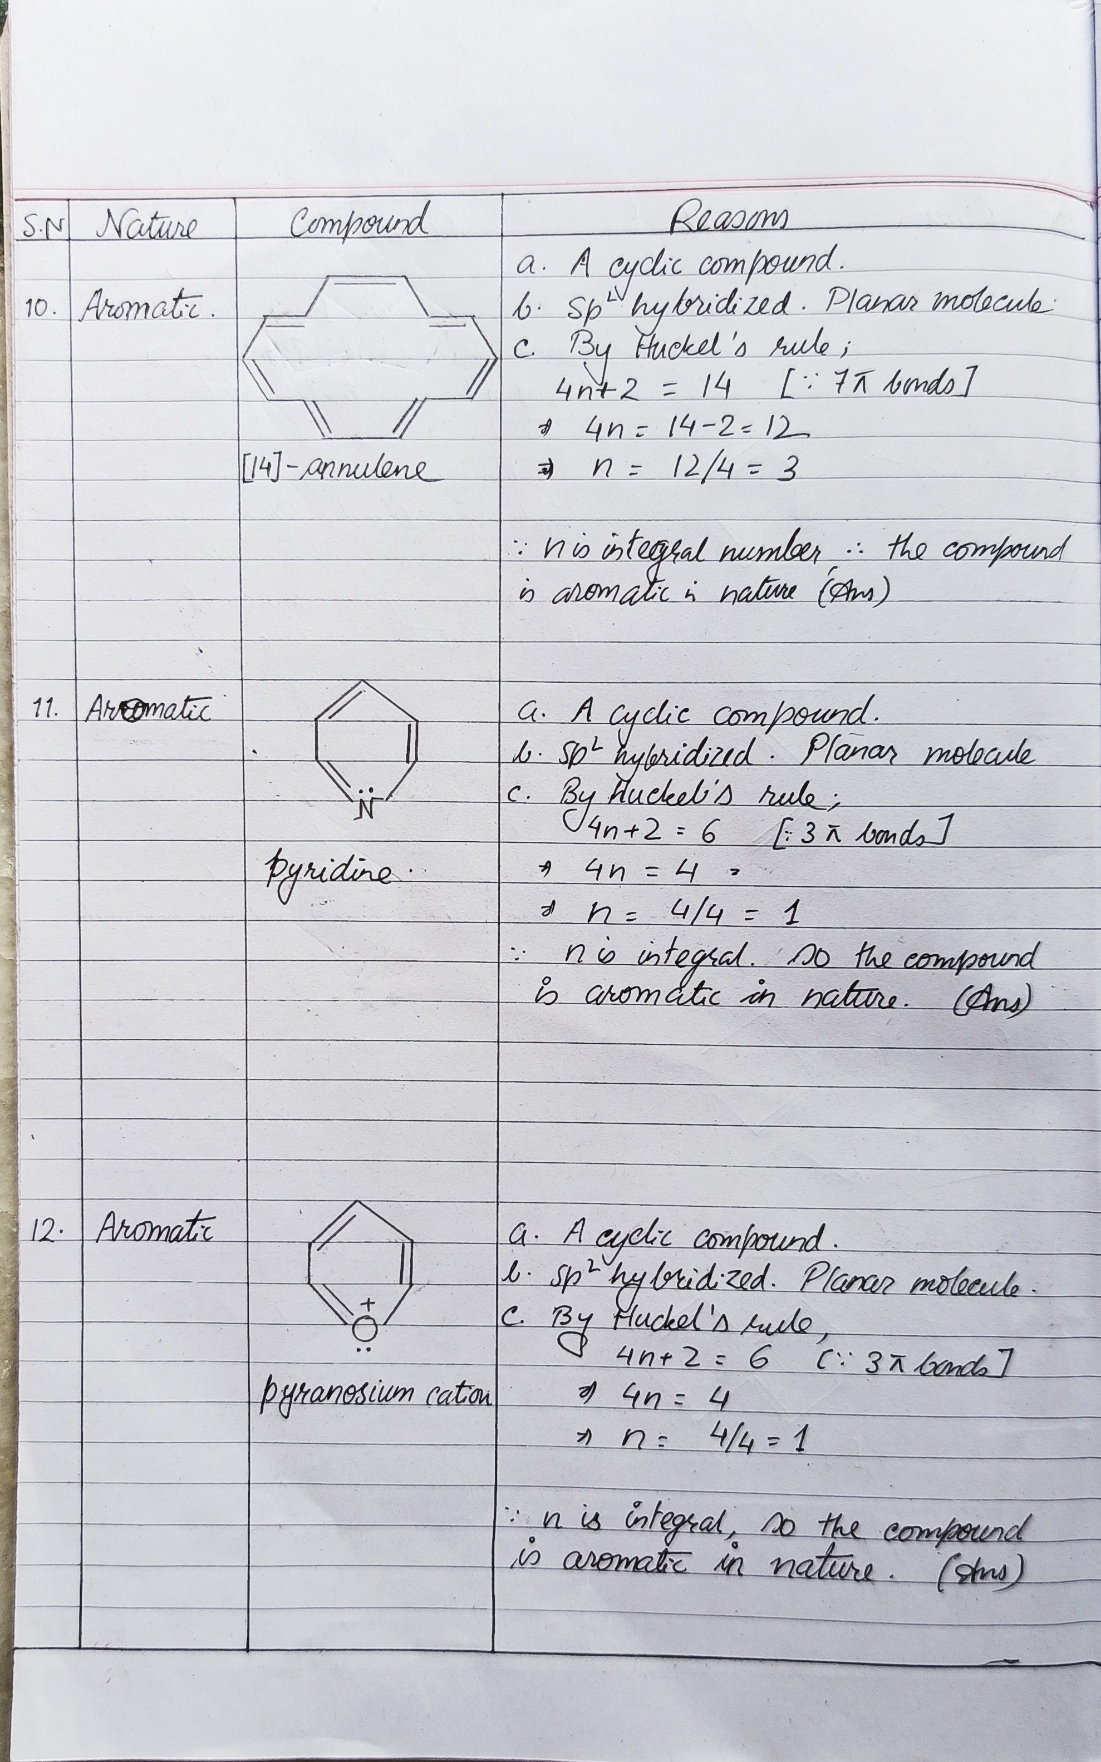 S.N Nature Compound Reasons
a. A cyclic compound.
10. Aromatic. b. sp² hybridized. Planar molecule.
c. By Huckel's rule;
4n+2 = 14 [∵ 7π bonds]
⇒ 4n = 14-2 = 12
[14]-annulene ⇒ n = 12/4 = 3
∵ n is integral number, ∴ the compound
is aromatic in nature (Ans)
11. Aromatic a. A cyclic compound.
b. sp² hybridized. Planar molecule
c. By Huckel's rule;
N̈
4n+2 = 6 [∵ 3π bonds]
pyridine. ⇒ 4n = 4
⇒ n = 4/4 = 1
∵ n is integral. so the compound
is aromatic in nature. (Ans)
12. Aromatic a. A cyclic compound.
b. sp² hybridized. Planar molecule.
+
O c. By Huckel's rule,
4n+2 = 6 [∵ 3π bonds]
pyranosium cation ⇒ 4n = 4
⇒ n = 4/4 = 1
∵ n is integral, so the compound
is aromatic in nature. (Ans)